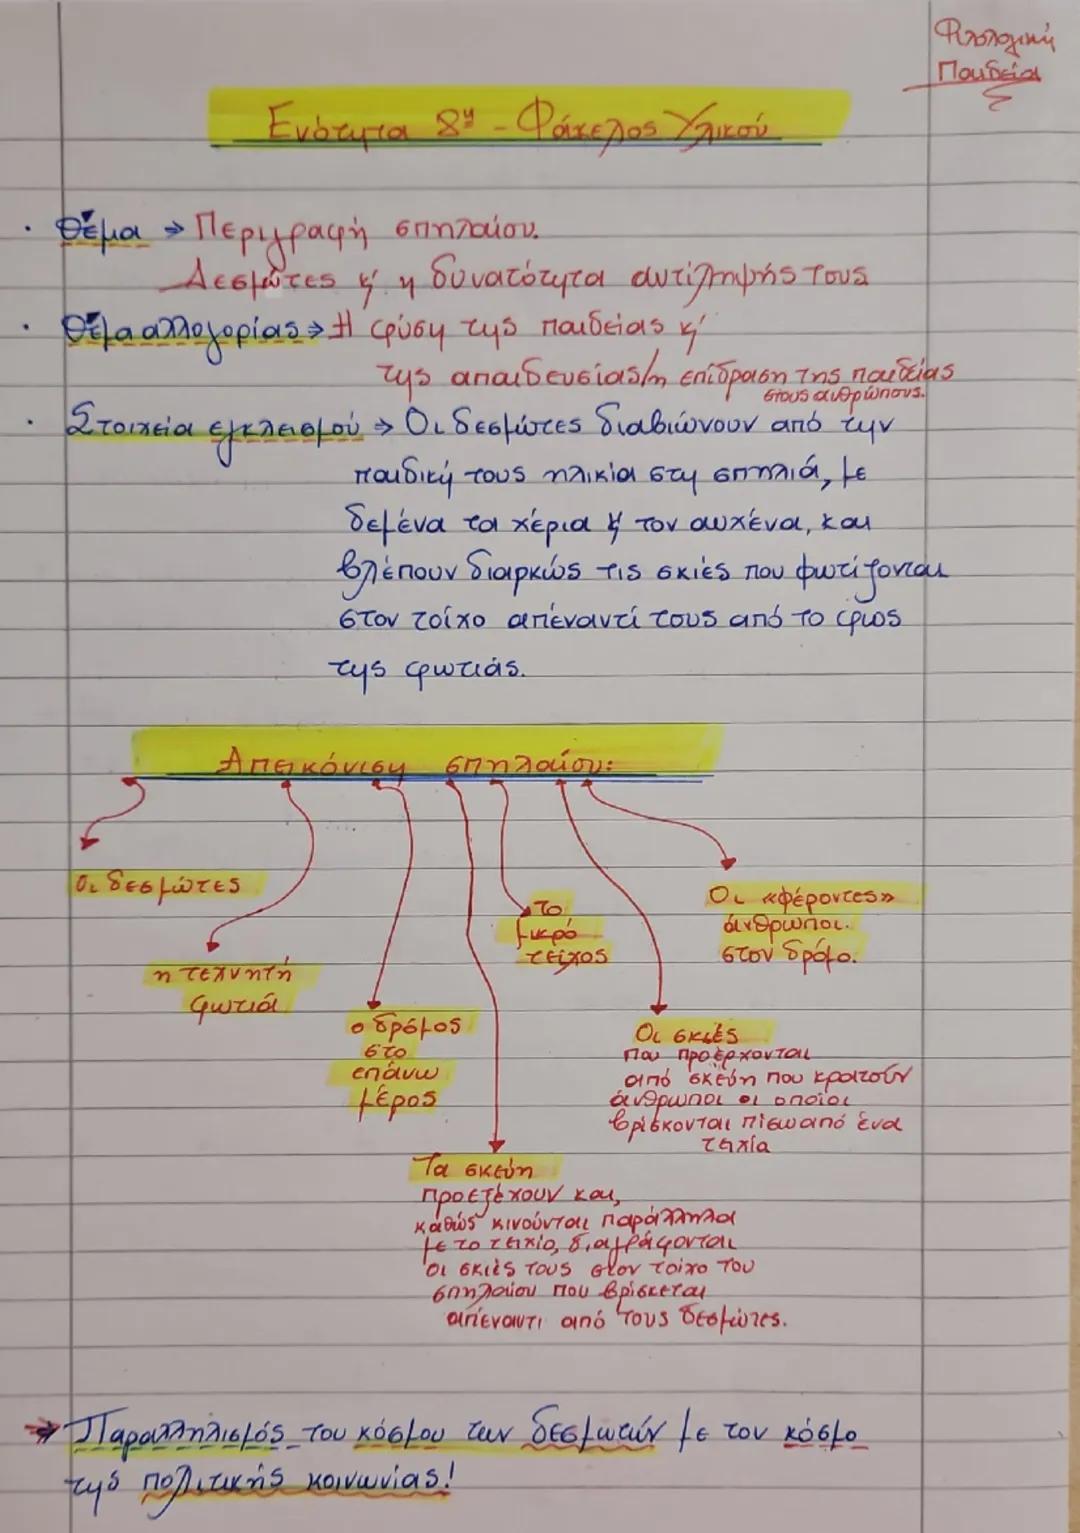 Φιλολογική
Παιδεία
Ενότητα 8η - Φάκελος Υλικού
· Θέμα → Περιγραφή σπηλαίου.
Δεσμώτες κ' η δυνατότητα αντίληψής τους
· Θέμα αλληγορίας → Η φύση της παιδείας κ'
της απαιδευσίας/η επίδραση της παιδείας
στους ανθρώπους.
· Στοιχεία εγκλεισμού → Οι δεσμώτες διαβιώνουν από την
παιδική τους ηλικία στη σπηλιά, με
δεμένα τα χέρια κ' τον αυχένα, και
βλέπουν διαρκώς τις σκιές που φωτίζονται
στον τοίχο απέναντί τους από το φως
της φωτιάς.
Απεικόνιση σπηλαίου:
Οι δεσμώτες
η τεχνητή
φωτιά
ο δρόμος
στο
επάνω
μέρος
Τα σκεύη
προεξέχουν και,
καθώς κινούνται παράλληλα
με το τειχίο, διαγράφονται
οι σκιές τους στον τοίχο του
σπηλαίου που βρίσκεται
απέναντι από τους δεσμώτες.
το
μικρό
τείχος
Οι σκιές
που προέρχονται
από σκεύη που κρατούν
άνθρωποι οι οποίοι
βρίσκονται πίσω από ένα
τειχία
Οι «φέροντες»
άνθρωποι.
στον δρόμο.
→ Παραλληλισμός του κόσμου των δεσμωτών με τον κόσμο
της πολιτικής κοινωνίας!